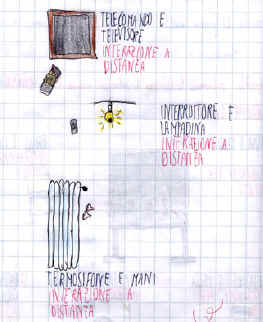 TELECOMANDO E
TELEVISORE
INTERAZIONE A
DISTANZA
INTERRUTTORE E
LAMPADINA
INTERAZIONE A
DISTANZA
TERMOSIFONE E MANI
INTERAZIONE A
DISTANZA